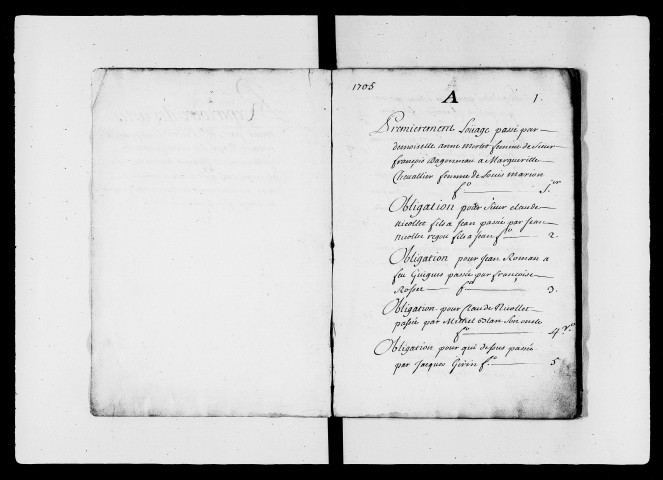 1705
A 1.
Premierement Loüage passé par
demoiselle anne mortet femme de Sieur
françois Dagoneau a Marguerille
Chevallier femme de Louis marion
f.o 1.er
Obligation pour Sieur claude
nicollet fils a Jean passée par Jean
nicollet fils a Jean f.o 2.
Obligation pour Jean Roman a
feu Guigues passée par françoise
f.o 3.
Obligation pour Claude Nicollet
passée par Michel Son oncle
f.o 4 v.o
Obligation pour qui dessus passée
par Jacques Givin f.o 5